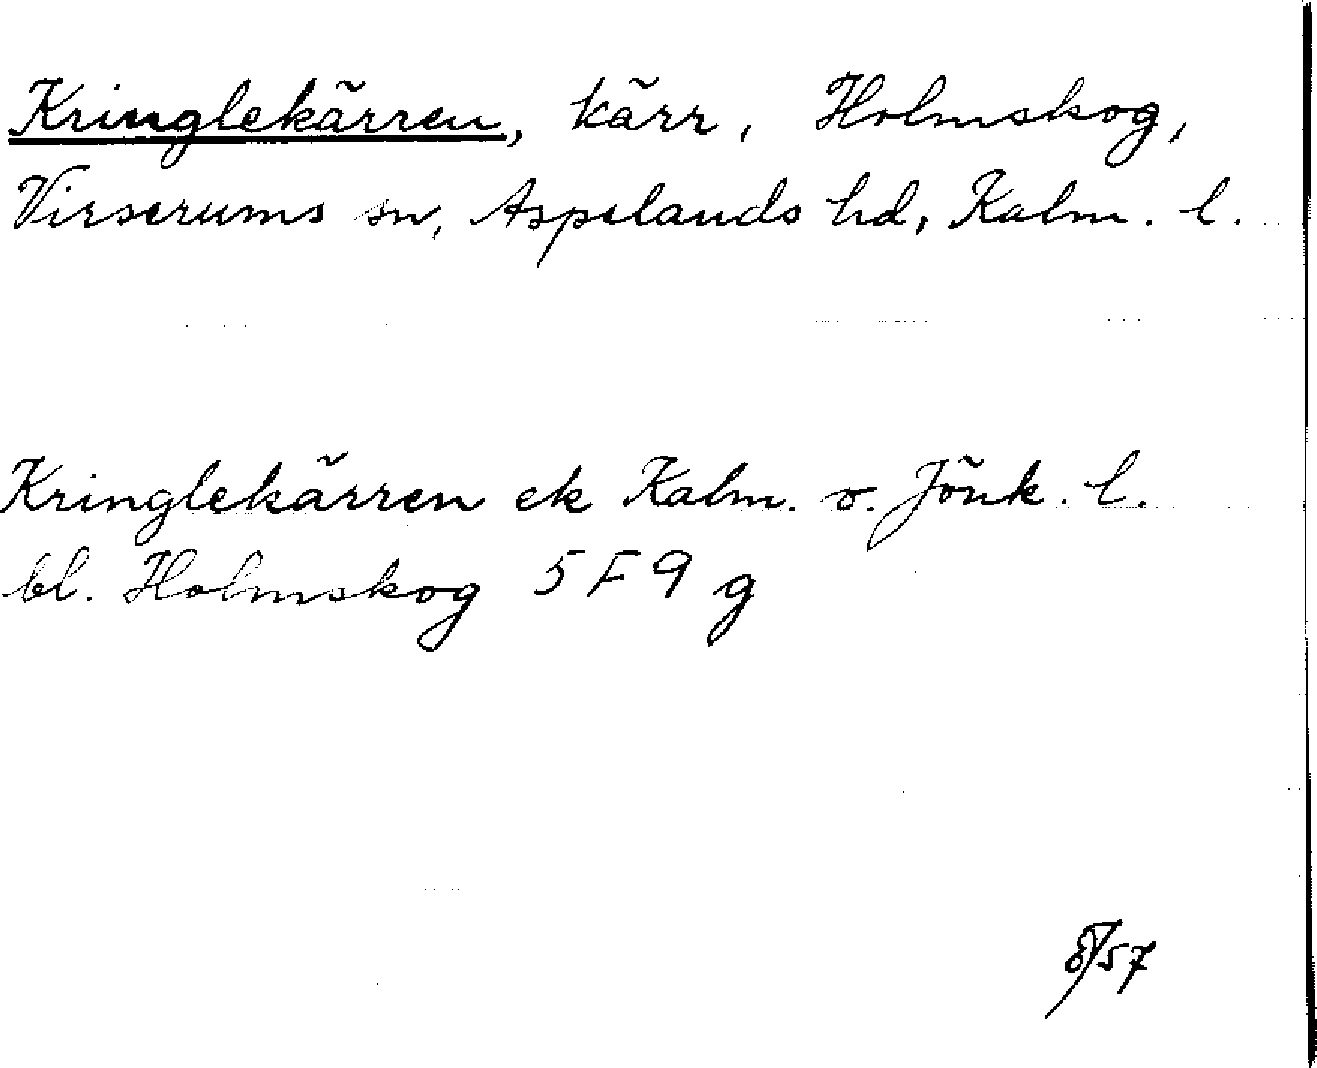 Kringlekärren, kärr, Holmskog,
Virserums sn, Aspelands hd, Kalm. l.
Kringlekärren ek Kalm. o. Jönk. l.
bl. Holmskog 5 F 9 g
8/57